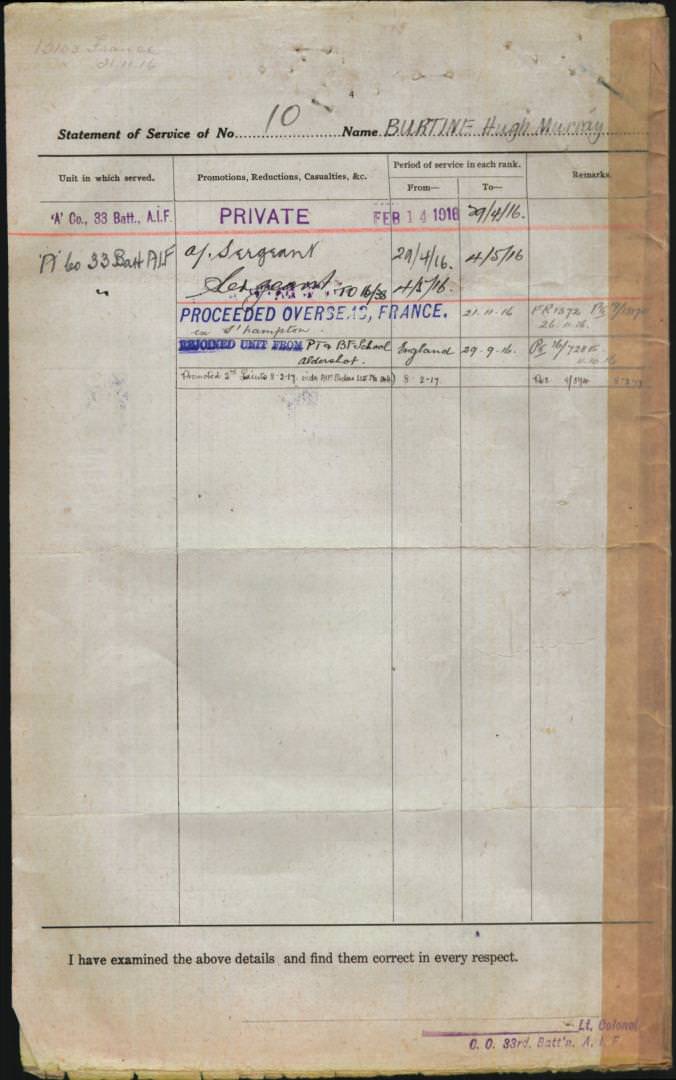 13103 France
21.11.16
4
Statement of Service of No. 10 Name BURTINE Hugh Murray
Unit in which served. Promotions, Reductions, Casualties, &c. Period of service in each rank. Remarks.
From— To—
'A' Co., 33 Batt., A.I.F. PRIVATE FEB 14 1916 29/4/16.
"A" Co 33 Batt AIF a/. Sergeant 29/4/16. 4/5/16
" Sergeant RO 16/38 4/5/16.
PROCEEDED OVERSEAS, FRANCE. 21.11.16 FR1372
ex S'hampton. 26.11.16.
REJOINED UNIT FROM PT & BF School England 29.9.16.
Aldershot.
Promoted 2nd Lieut 8.2.17. 8.2.17.
I have examined the above details and find them correct in every respect.
Lt. Colonel
C. O. 33rd. Batt'n. A. I. F.